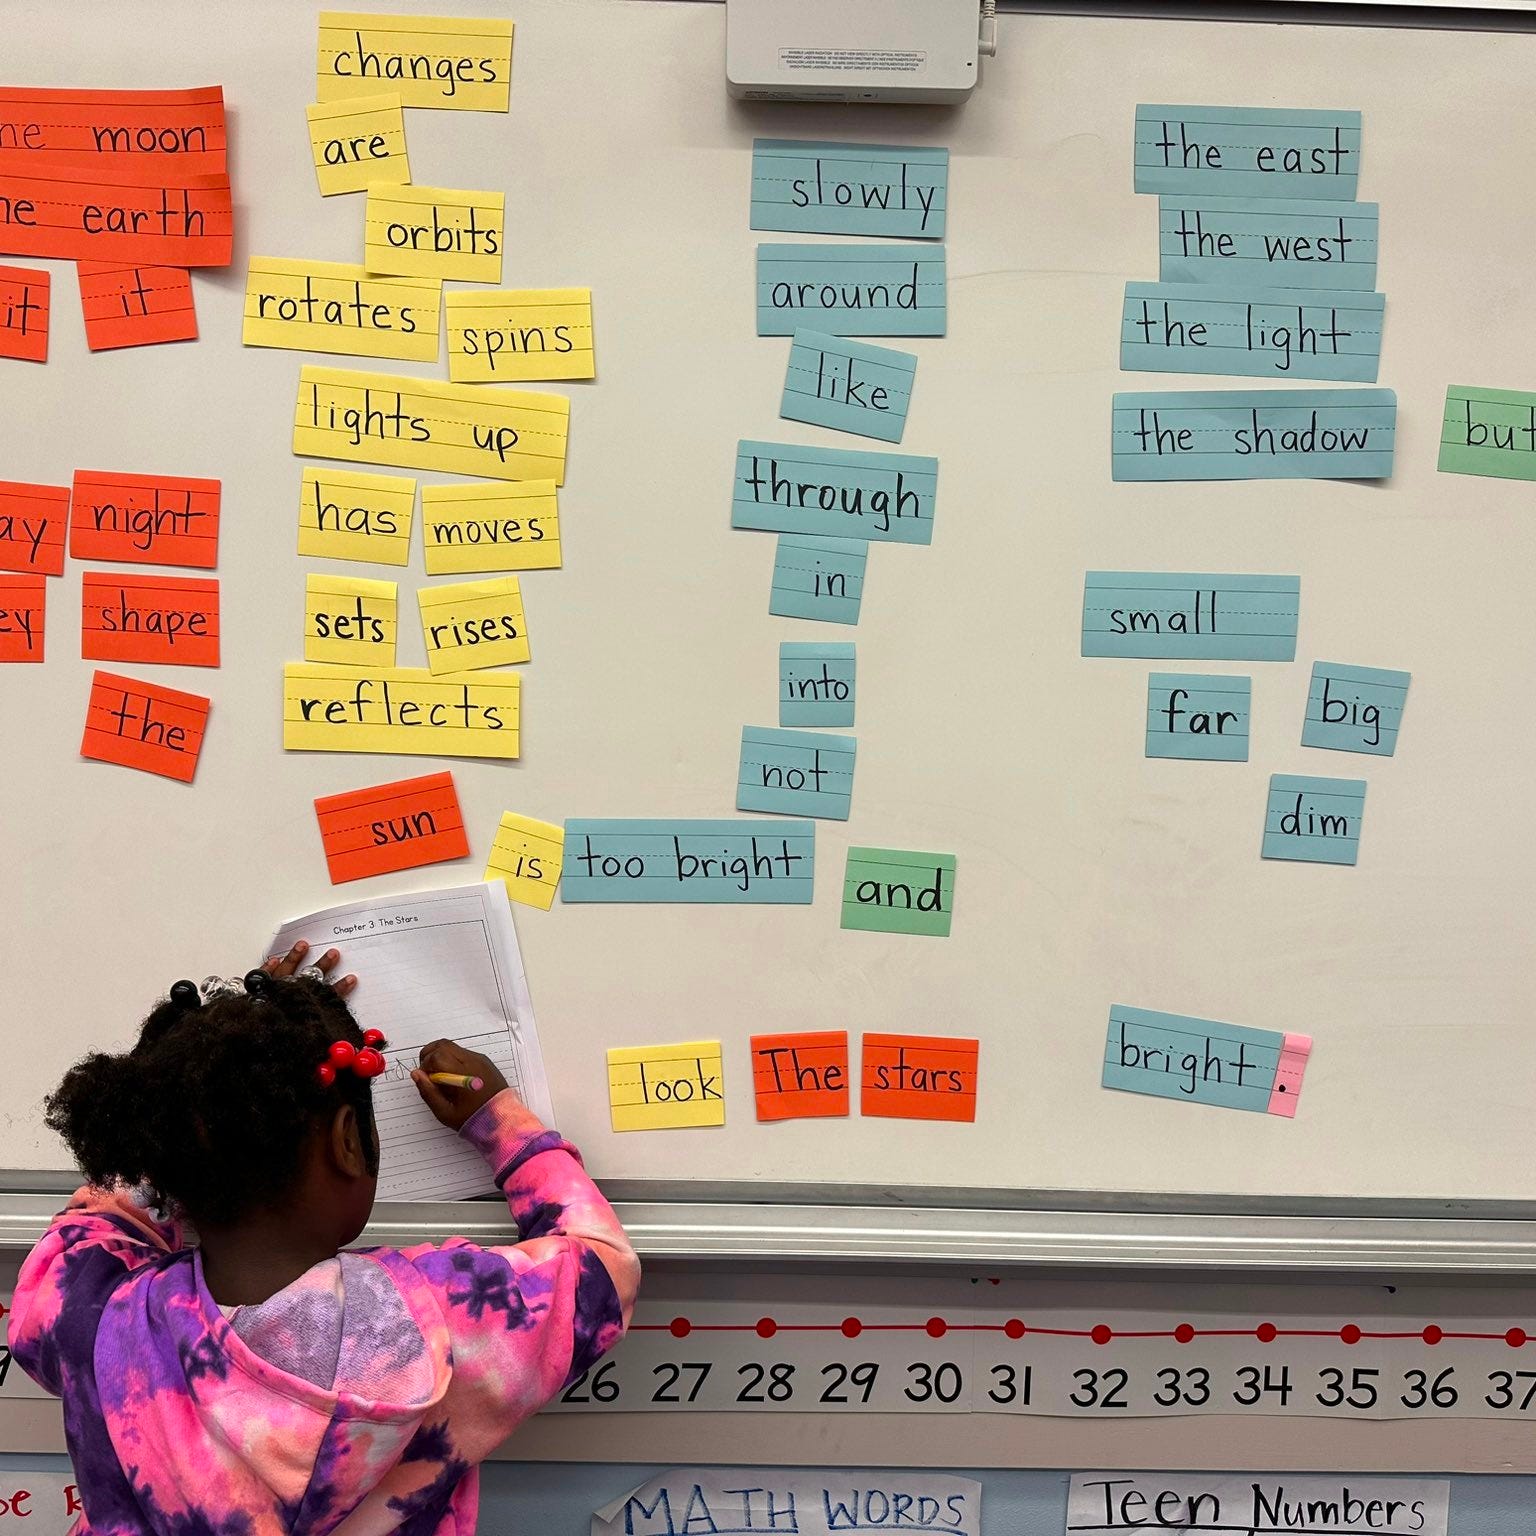 changes
are
moon
earth
orbits
it
it
rotates
spins
lights up
night
has
moves
shape
sets
rises
the
reflects
slowly
around
like
through
in
into
not
the east
the west
the light
the shadow
but
small
far
big
dim
sun is too bright and
Chapter 3: The Stars
look The stars bright.
26 27 28 29 30 31 32 33 34 35 36 37
MATH WORDS
Teen Numbers